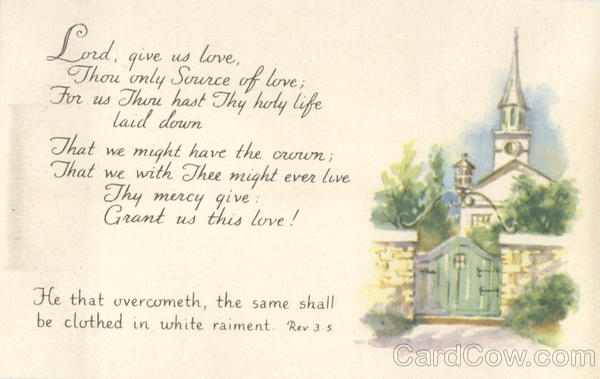 Lord, give us love,
Thou only Source of love;
For us Thou hast Thy holy life
laid down
That we might have the crown;
That we with Thee might ever live
Thy mercy give:
Grant us this love!
He that overcometh, the same shall
be clothed in white raiment. Rev 3.5
CardCow.com